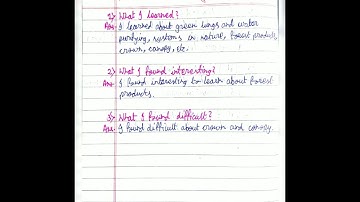 1) What I learned?
Ans- I learned about green lungs and water
purifying, systems in nature, forest products,
crown, canopy, etc.
2) What I found interesting?
Ans- I found interesting to learn about forest
products.
3) What I found difficult?
Ans- I found difficult about crown and canopy.